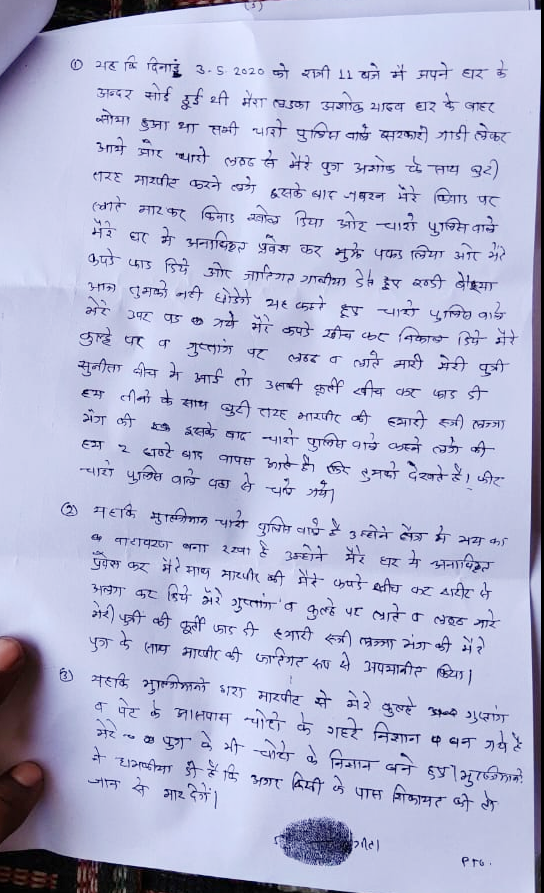 (3)
① यह कि दिनांक 3.5.2020 को रात्री 11 बजे मैं अपने घर के
अन्दर सोई हुई थी मेरा लडका अशोक यादव घर के बाहर
सोया हुआ था तभी चारो पुलिस वाले सरकारी गाडी लेकर
आये और चारो लठठ से मेरे पुत्र अशोक के साथ बुरी
तरह मारपीट करने लगे इसके बाद जबरन मेरे किवाड पर
लाते मारकर किवाड खोल दिया और चारो पुलिस वाले
मेरे घर मे अनाधिकृत प्रवेश कर मुझे पकड लिया और मेरे
कपडे फाड दिये और जातिगत गालीया देते हुए रण्डी बैश्या
आज तुमको नही छोडेगे यह कहते हुए चारो पुलिस वाले
मेरे उपर पड गये मेरे कपडे खीच कर निकाल दिये मेरे
कुल्हे पर व गुप्तांग पर लठठ व लाते मारी मेरी पुत्री
सुनीता बीच मे आई तो उसकी कुर्ती खीच कर फाड दी
हम तीनो के साथ बुरी तरह मारपीट की हमारी स्त्री लज्जा
भंग की इसके बाद चारो पुलिस वाले कहने लगे की
हम २ घण्टे बाद वापस आते है। फिर तुमको देखते है। फिर
चारो पुलिस वाले वहा से चले गये।
② यहकि मुल्जिमान चारो पुलिस वाले है उन्होने क्षेत्र मे भय का
वातावरण बना रखा है उन्होने मेरे घर मे अनाधिकृत
प्रवेश कर मेरे साथ मारपीट की मेरे कपडे खीच कर शरीर से
अलग कर दिये मेरे गुप्तांग व कुल्हे पर लाते व लठठ मारे
मेरी पुत्री की कुर्ती फाड दी हमारी स्त्री लज्जा भंग की मेरे
पुत्र के साथ मारपीट की जातिगत रूप से अपमानीत किया।
③ यहकि मुल्जिमानो द्वारा मारपीट से मेरे कुल्हे गुप्तांग
व पेट के आसपास चोटो के गहरे निशान बन गये है
मेरे पुत्र के भी चोटो के निशान बने हुए। मुल्जिमानो
ने धमकीया दी है कि अगर किसी के पास शिकायत की तो
जान से मार देगें।
PTO.